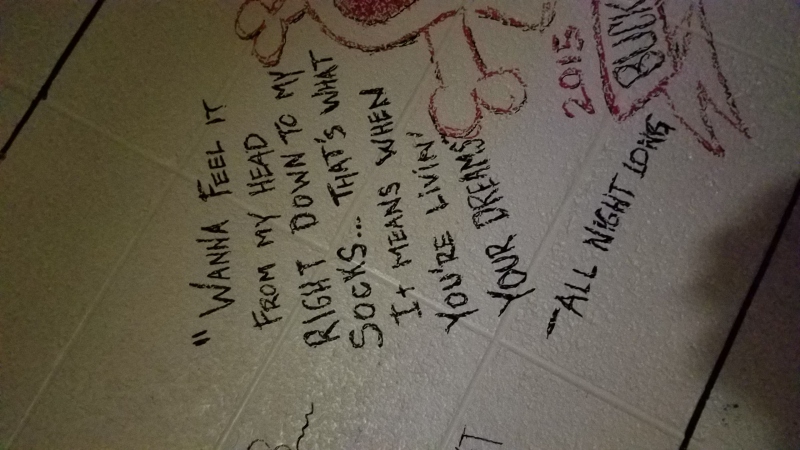 "WANNA FEEL IT
FROM MY HEAD
RIGHT DOWN TO MY
SOCKS... THAT'S WHAT
It MEANS WHEN
YOU'RE LIVIN'
YOUR DREAMS
—ALL NIGHT LONG
2015
BUCK